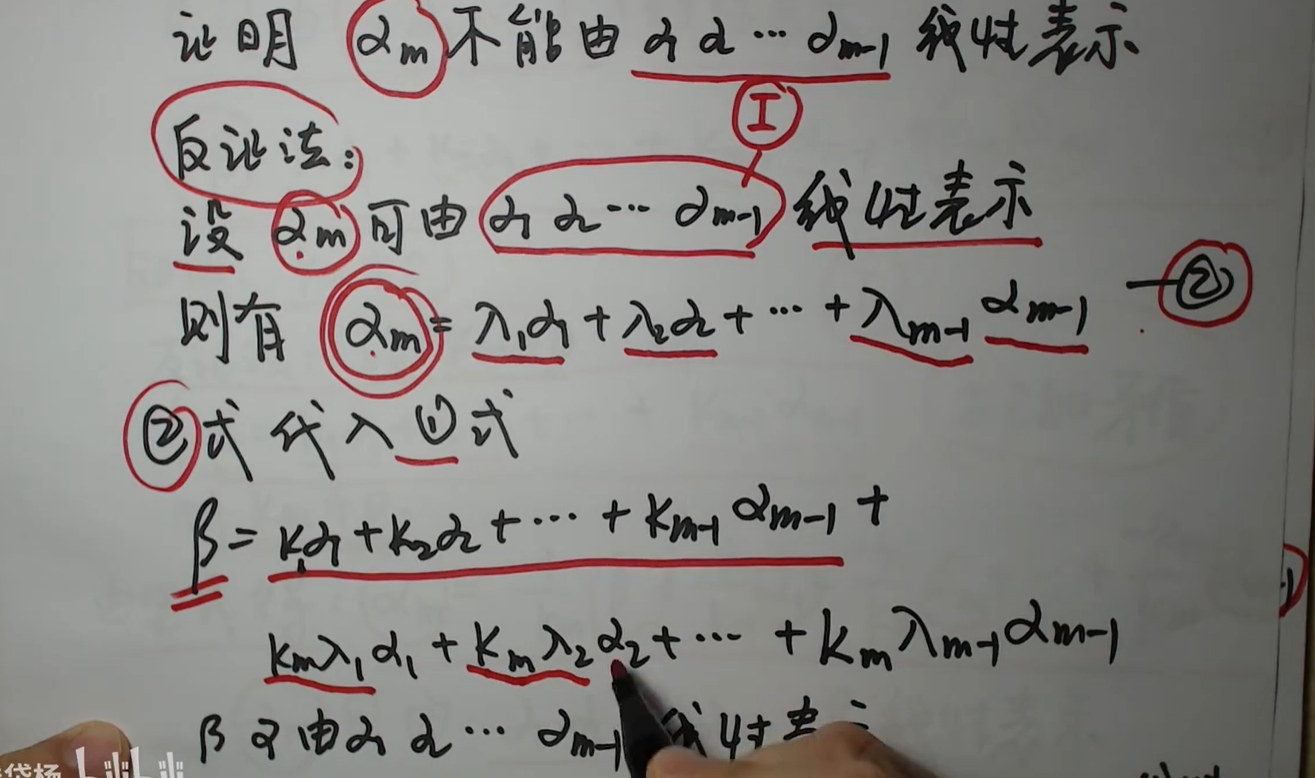 证明 αm 不能由 α1 α2 … αm-1 线性表示
I
反证法：
设 αm 可由 α1 α2 … αm-1 线性表示
则有 αm = λ1α1 + λ2α2 + … + λm-1 αm-1 —②
②式代入①式
β = k1α1 + k2α2 + … + km-1 αm-1 +
kmλ1α1 + kmλ2α2 + … + kmλm-1αm-1
β 可由 α1 α2 … αm-1 线性表示
bilibili